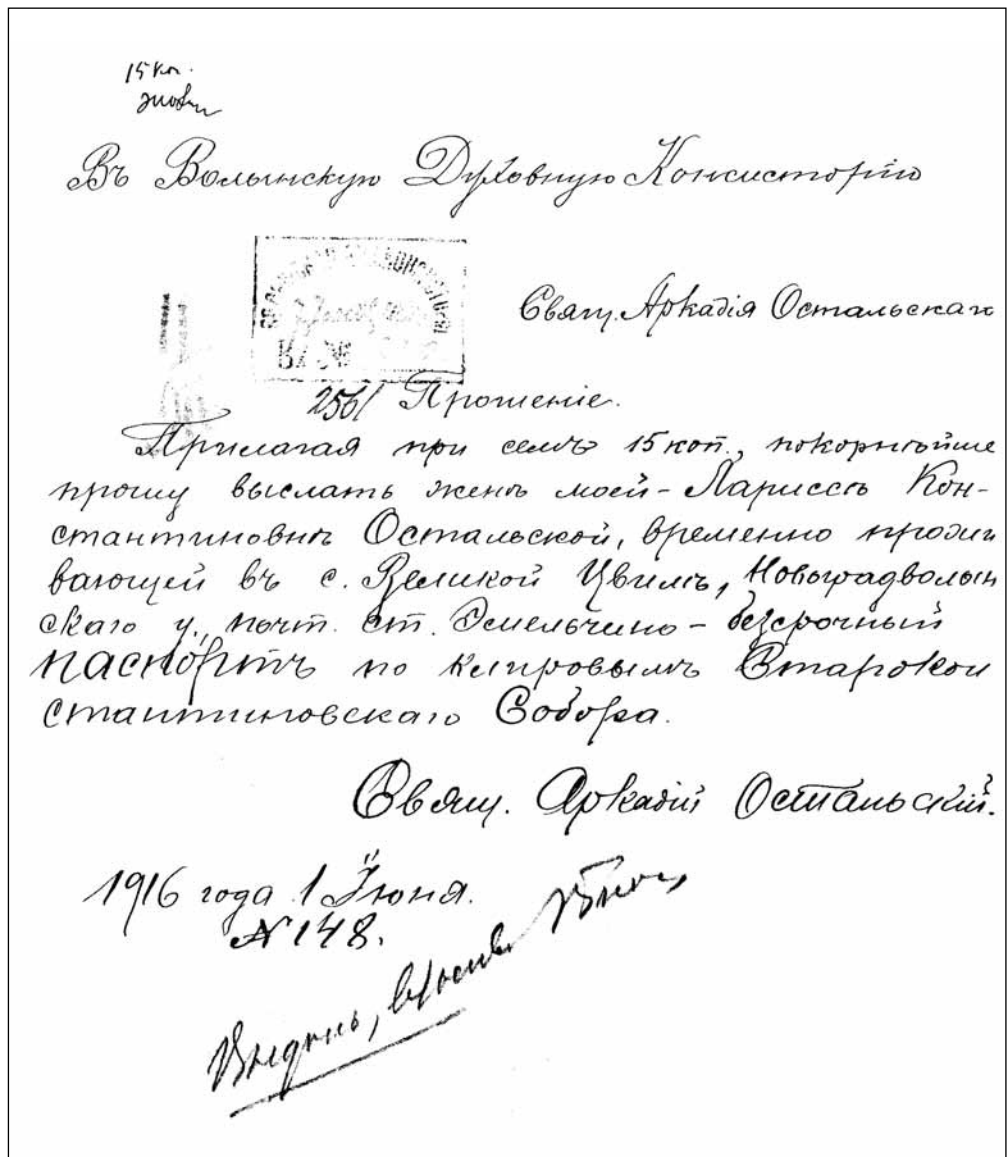 15 коп.
Въ Волынскую Духовную Консисторію
Свящ. Аркадія Остальскаго
2561 Прошеніе.
Прилагая при семъ 15 коп., покорнѣйше
прошу выслать женѣ моей - Лариссѣ Кон-
стантиновнѣ Остальской, временно прожи
вающей въ с. Великой Цвилѣ, Новоградволын
скаго у., почт. ст. Эмельчино - безсрочный
паспортъ по клировымъ Старокон
стантиновскаго Собора.
Свящ. Аркадій Остальскій.
1916 года 1 Іюня.
№ 148.